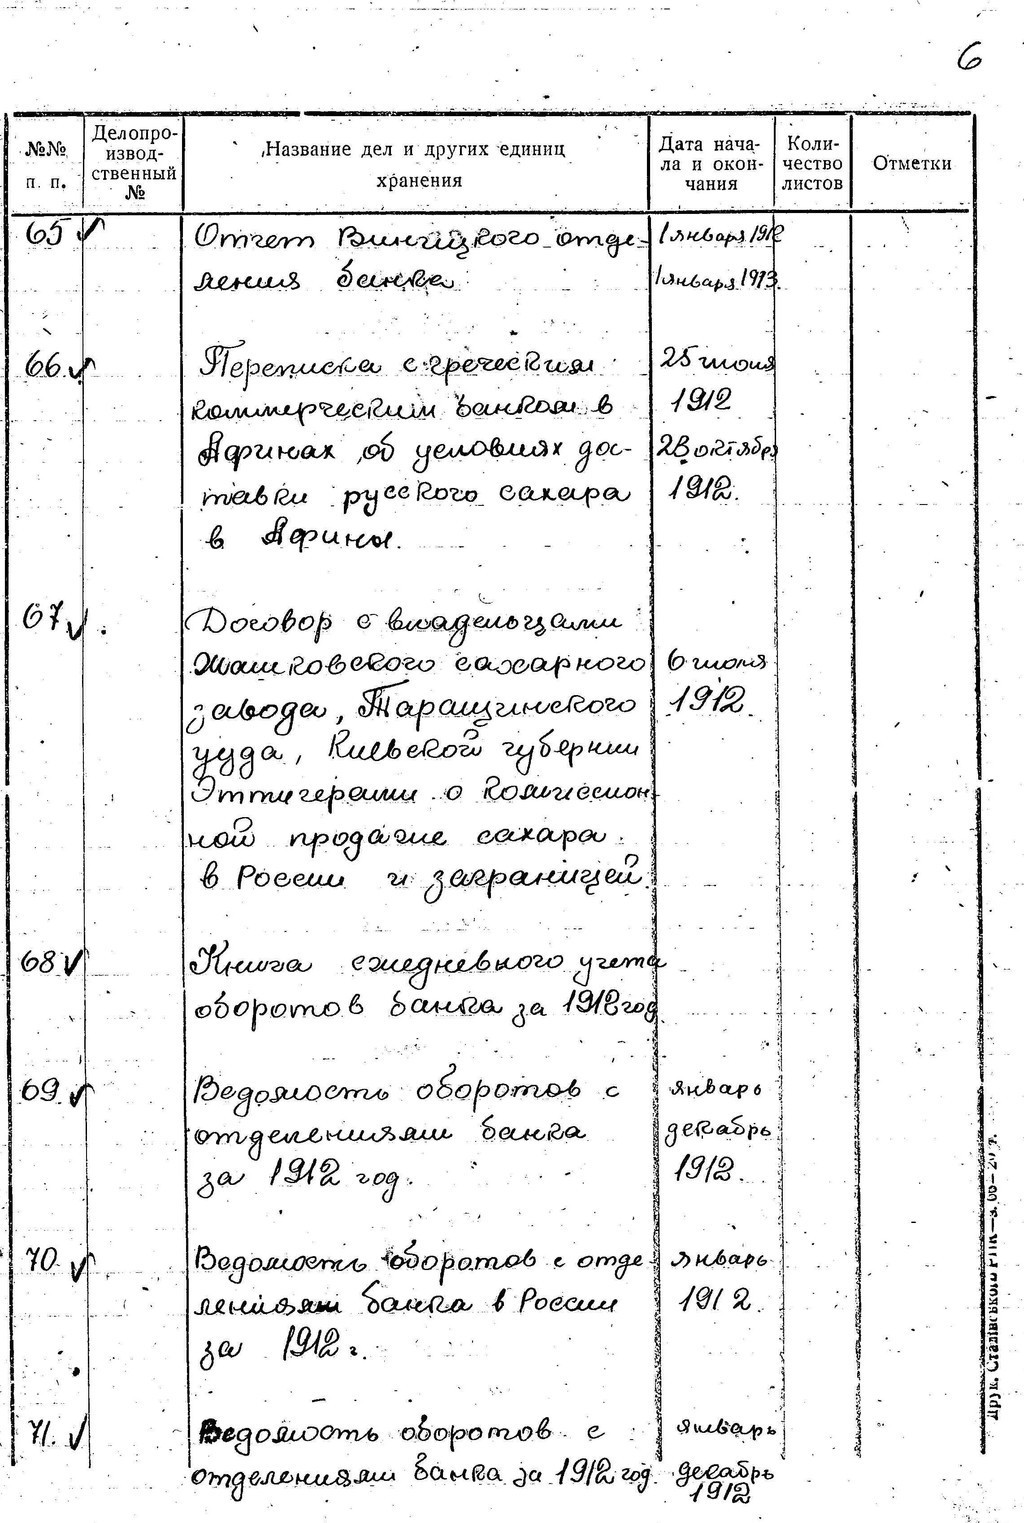 6
№№ п. п.
Делопроизводственный №
Название дел и других единиц хранения
Дата начала и окончания
Количество листов
Отметки
65 Отчет Винницкого отде- 1 января 1912
ления банка 1 января 1913.
66. Переписка с греческим 25 июня
коммерческим банком в 1912
Афинах об условиях дос- 28 октября
тавки русского сахара 1912.
в Афины.
67. Договор с владельцами
Жашковского сахарного 6 июля
завода, Таращинского 1912.
уезда, Киевской губернии
Эттингерами о комиссион-
ной продаже сахара
в России и заграницей.
68 Книга ежедневного учета
оборотов банка за 1912 год
69. Ведомость оборотов с январь
отделениями банка декабрь
за 1912 год. 1912.
70. Ведомость оборотов с отде- январь
лениями банка в России 1912.
за 1912 г.
71. Ведомость оборотов с январь
отделениями банка за 1912 год. декабрь
1912
Друк. Сталінського